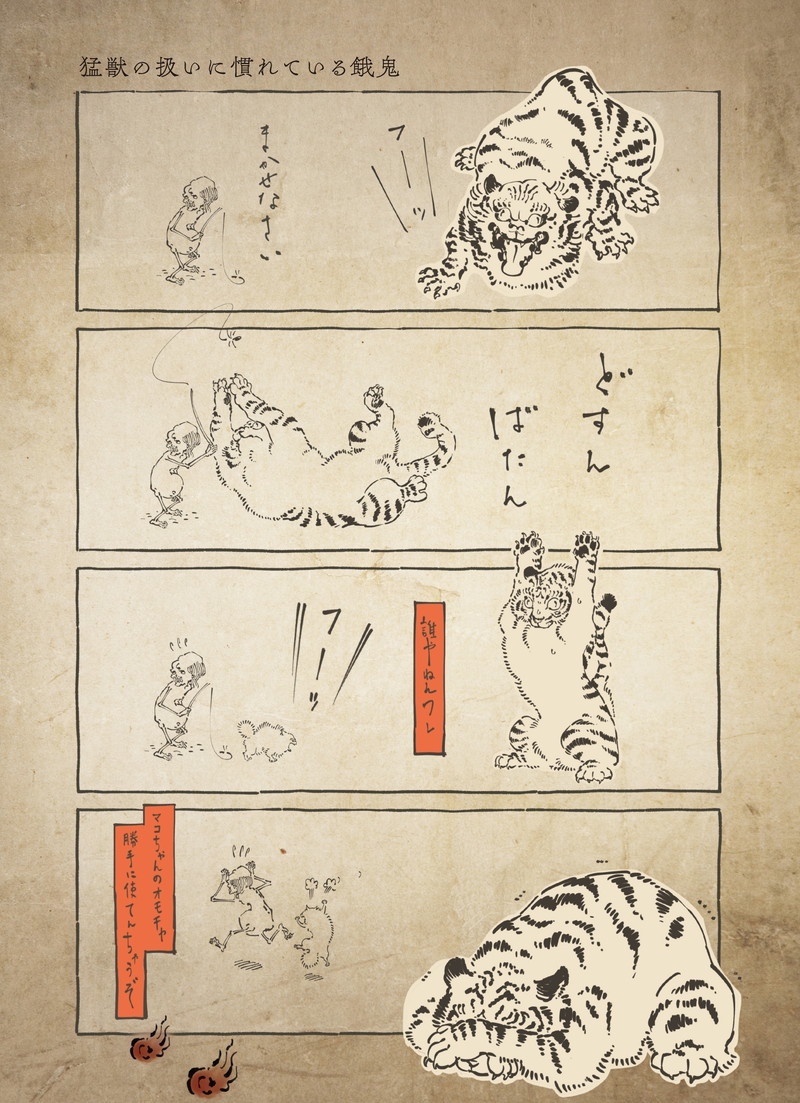 猛獣の扱いに慣れている餓鬼
フーッ
まかせなさい
どすん
ばたん
フーッ
誰やねんワレ
マコちゃんのオモチャ
勝手に使てんちゃうぞ